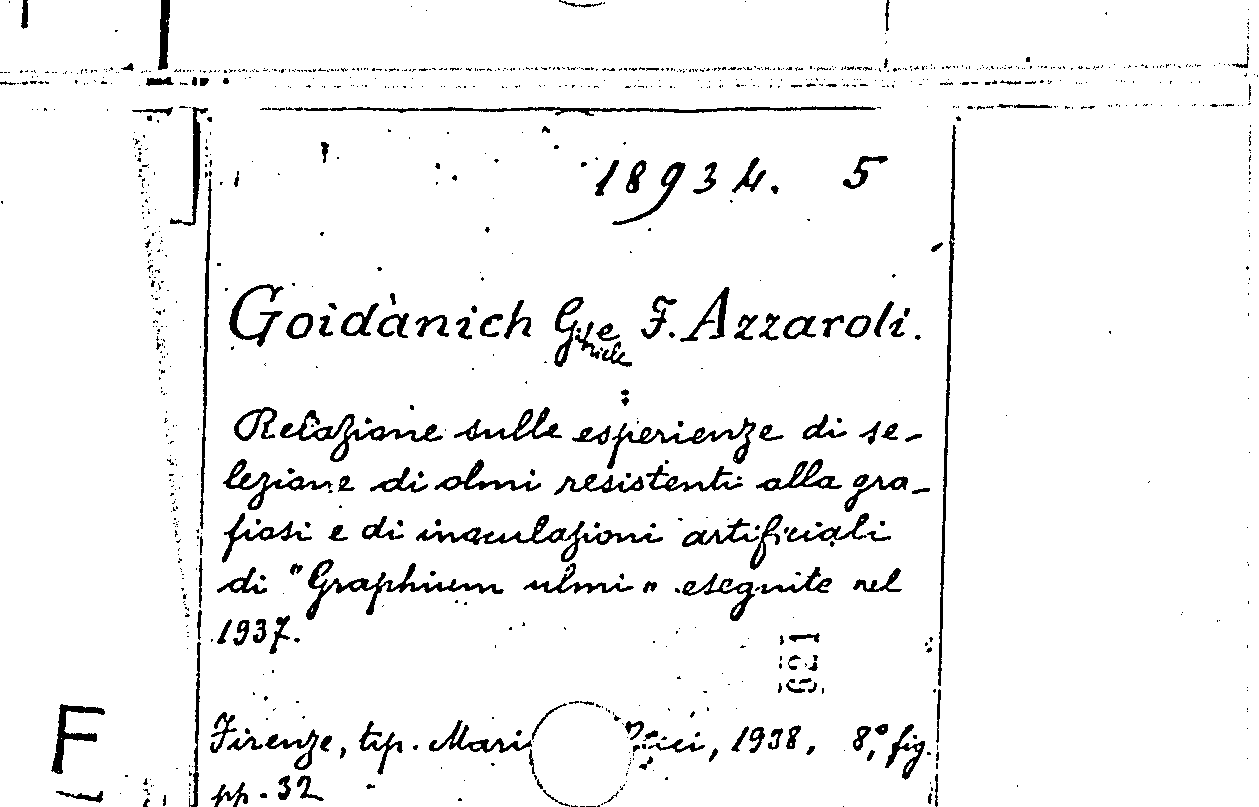 18934. 5
Goidànich G. e F. Azzaroli.
abriele
Relazione sulle esperienze di se-
lezione di olmi resistenti alla gra-
fiosi e di inoculazioni artificiali
di "Graphium ulmi" eseguite nel
1937.
621
Firenze, tip. Mari 1938, 8°, fig.
pp. 32
F